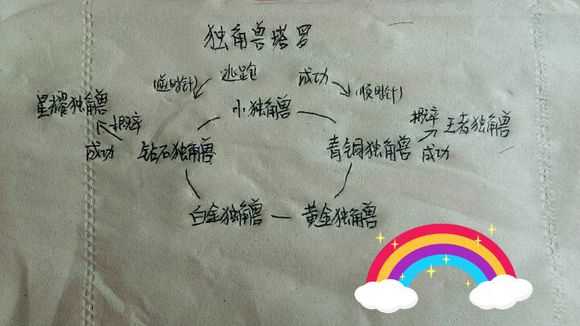 独角兽塔罗
逃跑 成功
(逆时针) (顺时针)
星耀独角兽 小独角兽
概率 概率 王者独角兽
成功 钻石独角兽 青铜独角兽 成功
白金独角兽 黄金独角兽